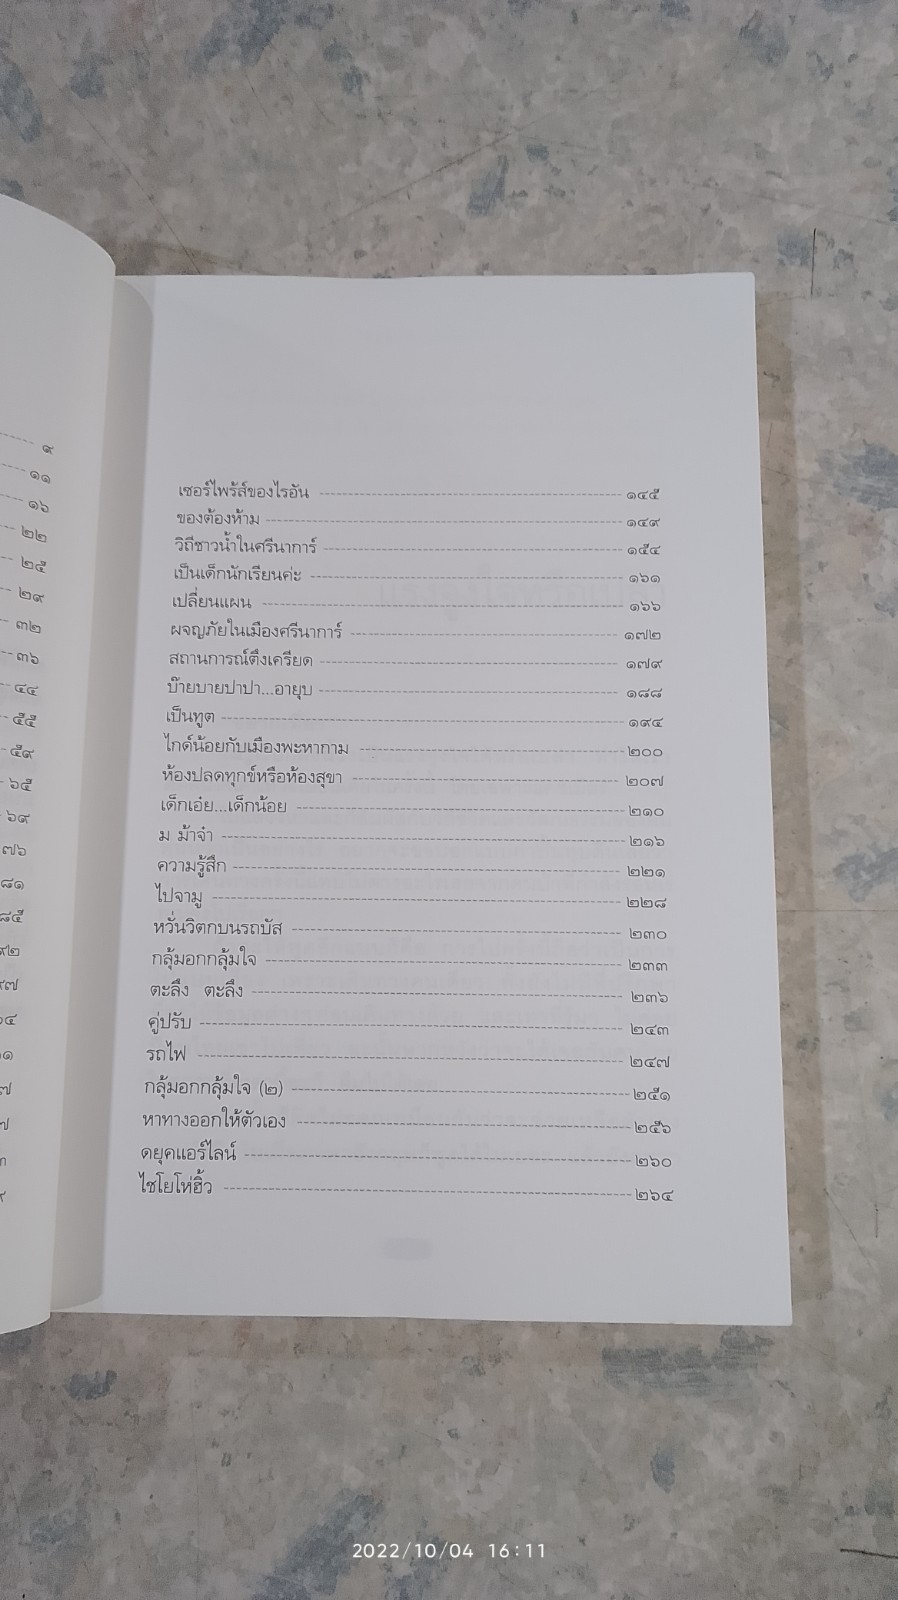 ๙
๑๑
๑๖
๒๒
๒๕
๒๙
๓๒
๓๖
๔๔
๕๕
๕๙
๖๕
๖๙
๗๖
๘๑
๘๕
๙๒
๙๗
เซอร์ไพร้ส์ของไรอัน ๑๔๕
ของต้องห้าม ๑๔๙
วิถีชาวน้ำในศรีนาการ์ ๑๕๔
เป็นเด็กนักเรียนค่ะ ๑๖๑
เปลี่ยนแผน ๑๖๖
ผจญภัยในเมืองศรีนาการ์ ๑๗๒
สถานการณ์ตึงเครียด ๑๗๙
บ๊ายบายปาปา...อายุบ ๑๘๘
เป็นทูต ๑๙๔
ไกด์น้อยกับเมืองพะหากาม ๒๐๐
ห้องปลดทุกข์หรือห้องสุขา ๒๐๗
เด็กเอ๋ย...เด็กน้อย ๒๑๐
ม ม้าจ๋า ๒๑๖
ความรู้สึก ๒๒๑
ไปจามู ๒๒๘
หวั่นวิตกบนรถบัส ๒๓๐
กลุ้มอกกลุ้มใจ ๒๓๓
ตะลึง ตะลึง ๒๓๖
คู่ปรับ ๒๔๓
รถไฟ ๒๔๗
กลุ้มอกกลุ้มใจ (๒) ๒๕๑
หาทางออกให้ตัวเอง ๒๕๖
ดยุคแอร์ไลน์ ๒๖๐
ไชโยโห่ฮิ้ว ๒๖๔
2022/10/04 16:11